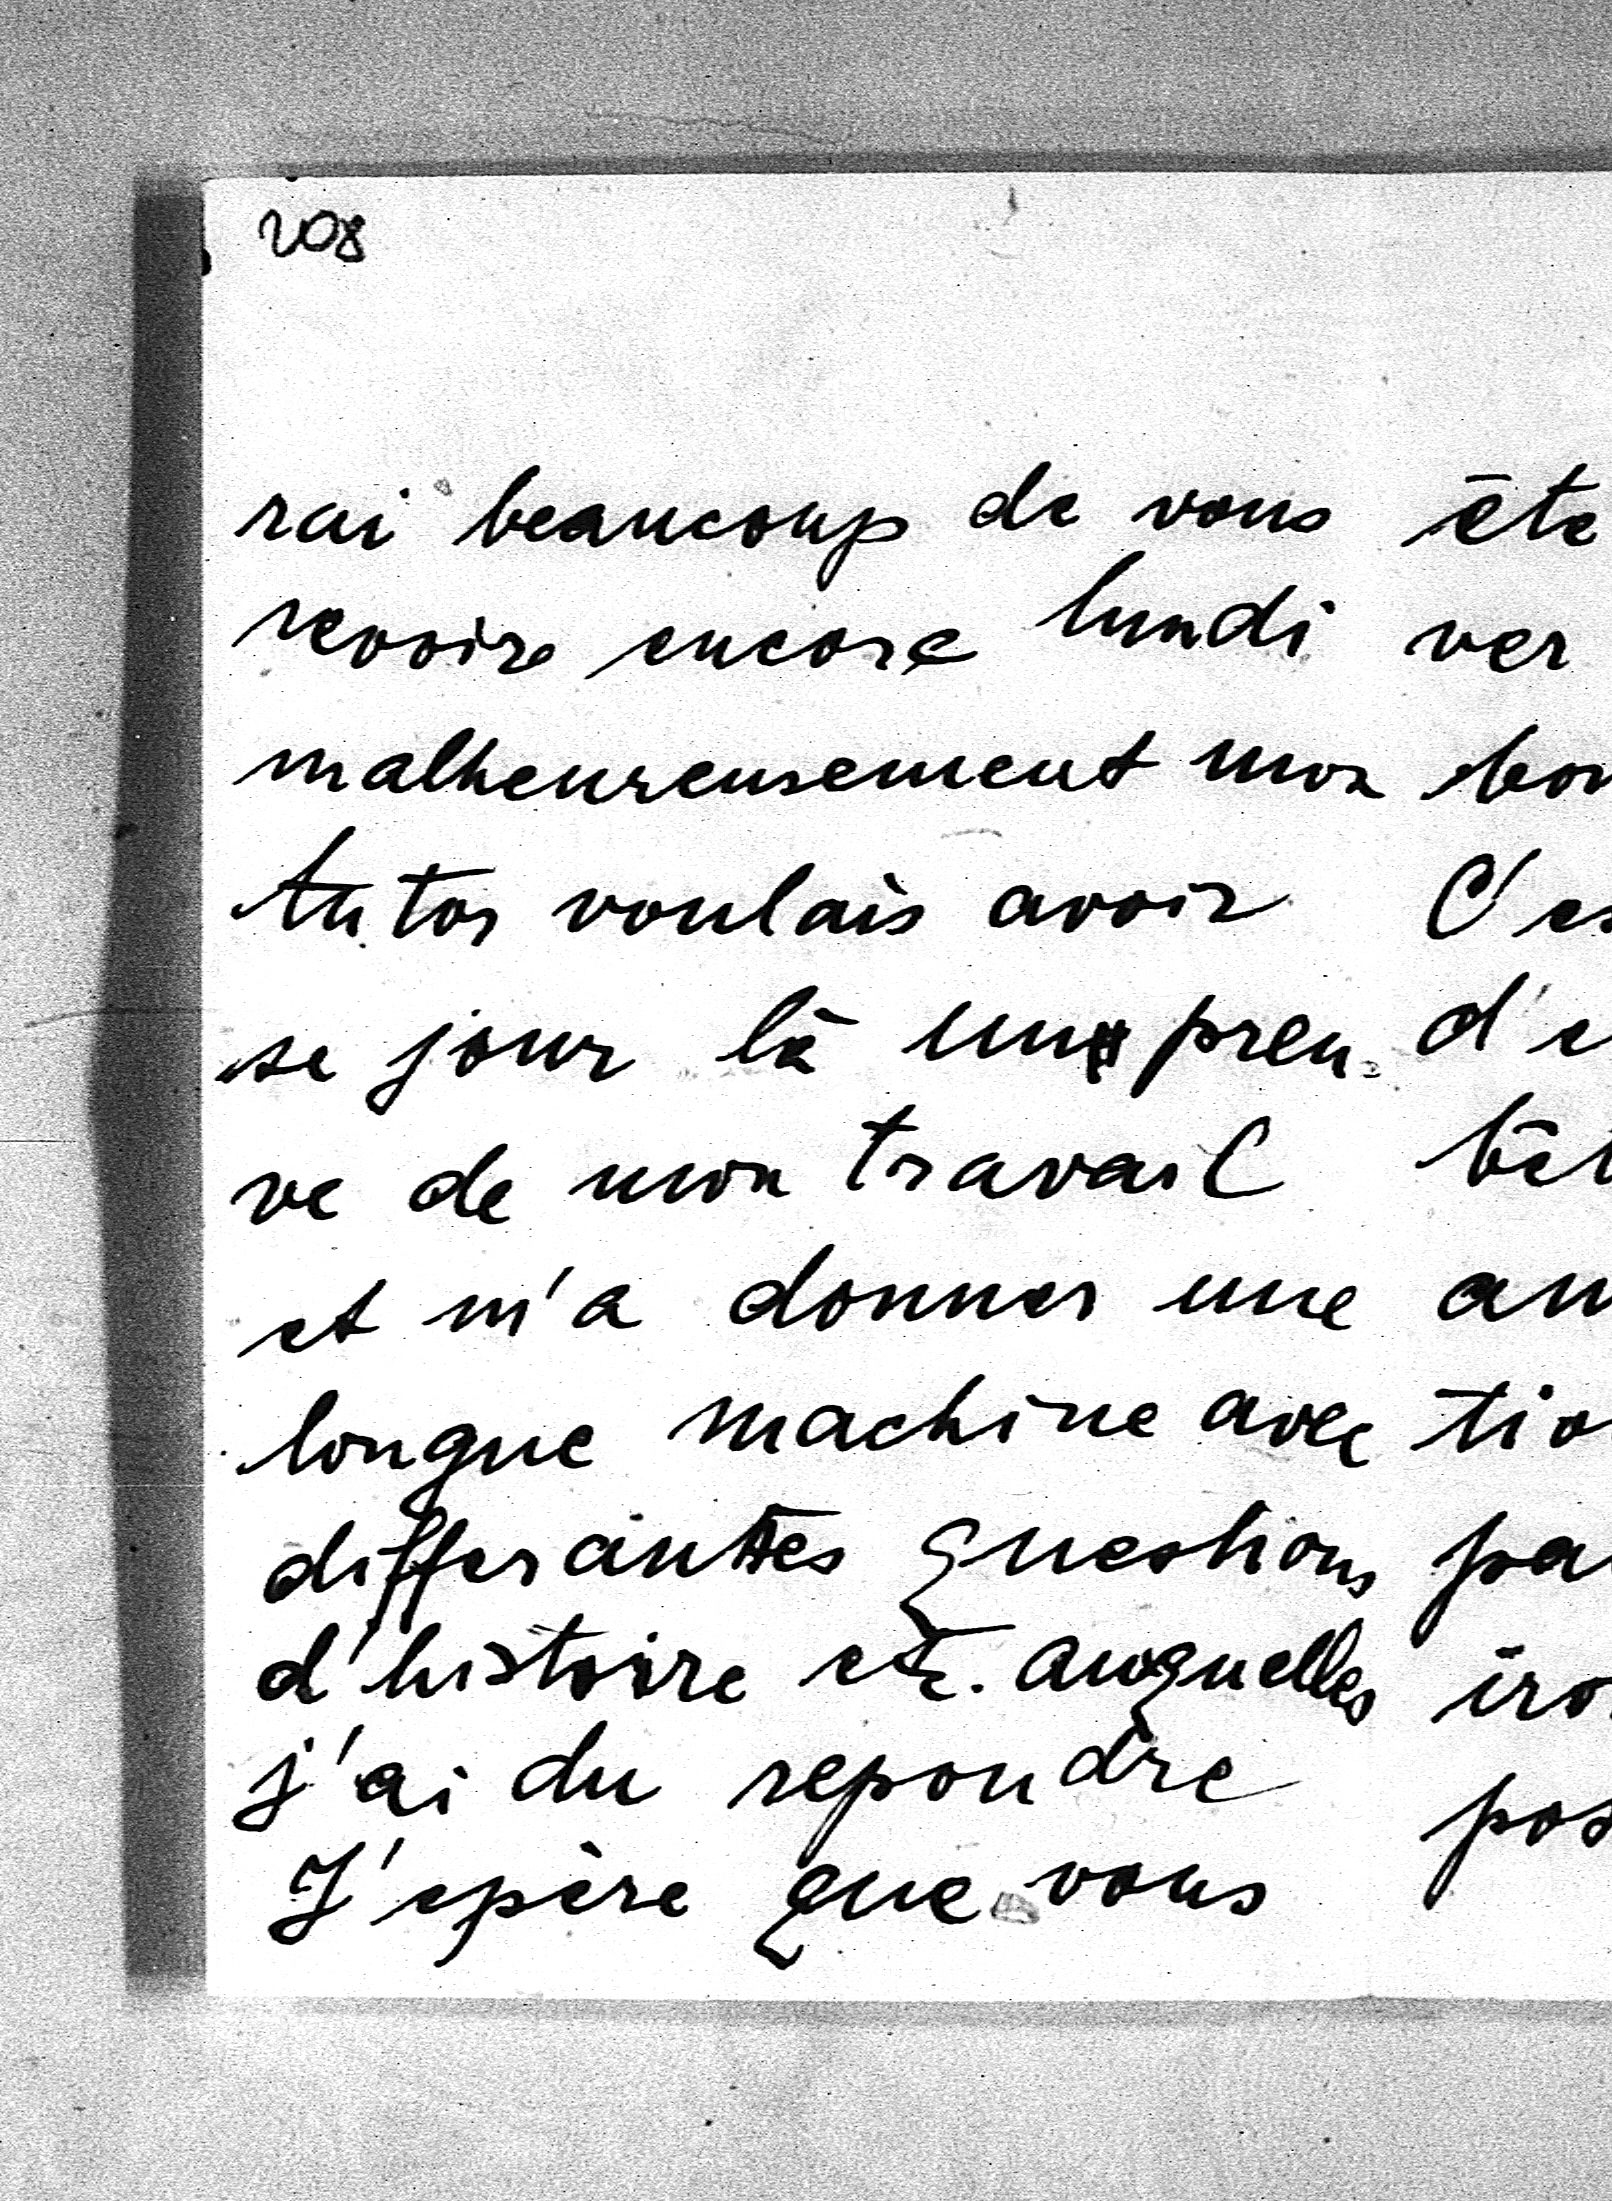 208
rai beaucoup de vous
revoire encore lundi
malheureusement mon
Tutor voulais avoir
se jour là une preu-
ve de mon travail
et m'a donner une
longue machine avec
differantes questions
d'histoire etc. auquelles
j'ai du repondre
J'epère que vous